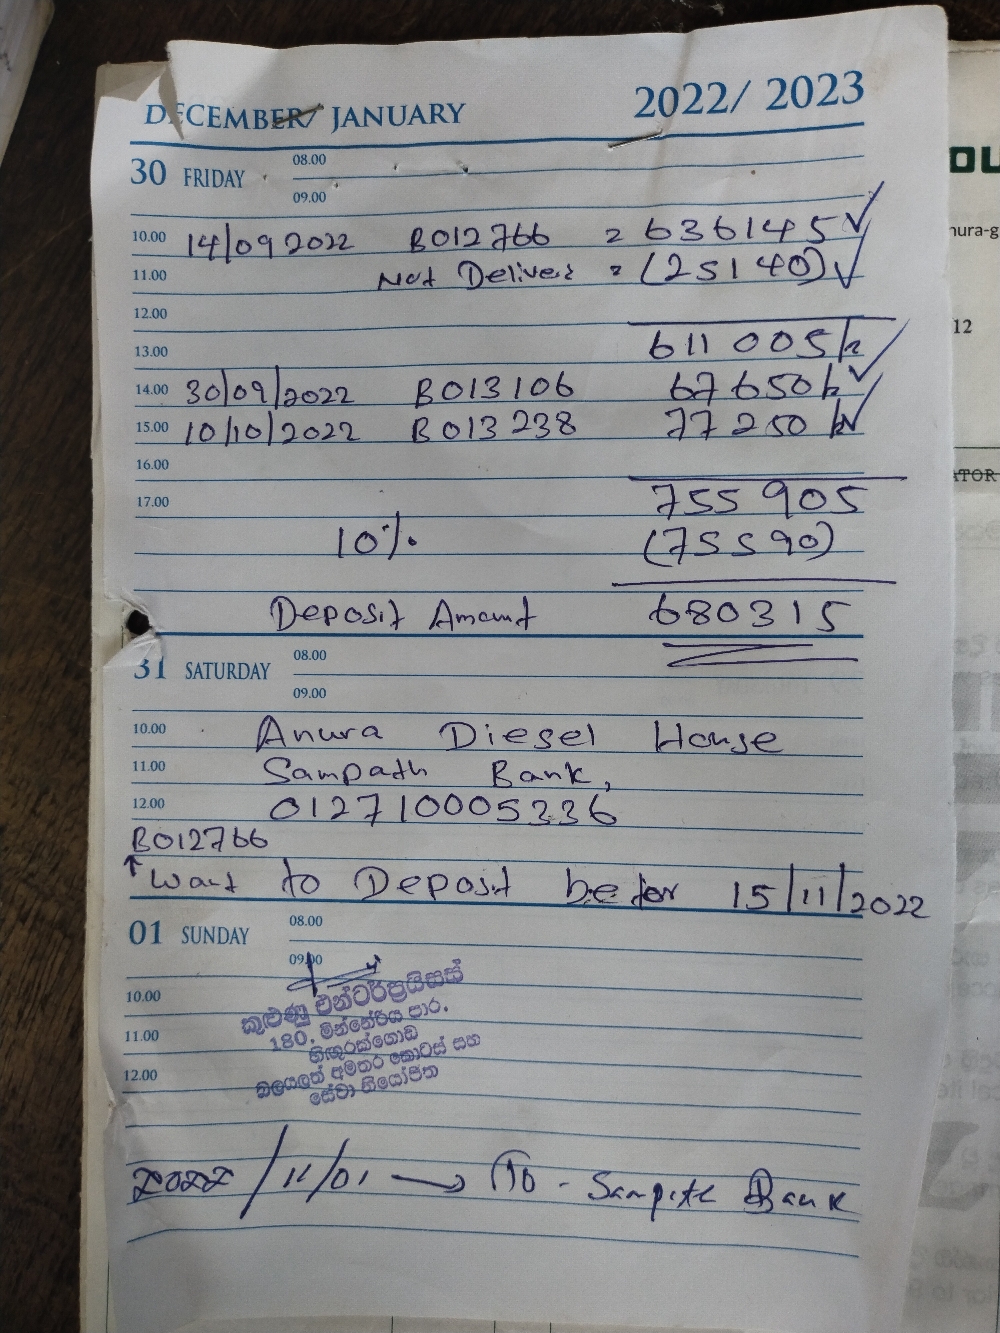 DECEMBER/ JANUARY 2022/ 2023
30 FRIDAY 08.00
09.00
10.00 14/09/2022 B012766 = 636145
11.00 Not Deliver = (25140)
12.00
13.00 611 005
14.00 30/09/2022 B013106 67 650
15.00 10/10/2022 B013238 77 250
16.00
17.00 755 905
10% (75590)
Deposit Amount 680315
31 SATURDAY 08.00
09.00
10.00 Anura Diesel House
11.00 Sampath Bank,
12.00 012710005336
B012766
↑ Want to Deposit befor 15/11/2022
01 SUNDAY 08.00
09.00
10.00 කුළුණු එන්ටර්ප්‍රයිසස්
180, මින්නේරිය පාර,
11.00 හිඟුරක්ගොඩ
බලයලත් අමතර කොටස් සහ
12.00 සේවා නියෝජිත
2022/11/01 → To - Sampath Bank
OU
nura-g
12
ATOR